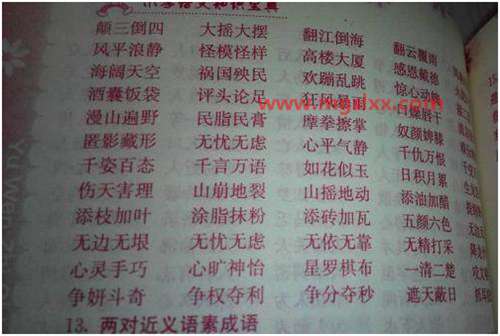 小学语文知识宝典
颠三倒四 大摇大摆 翻江倒海 翻云覆雨
风平浪静 怪模怪样 高楼大厦 感恩戴德
海阔天空 祸国殃民 欢蹦乱跳 惊心动魄
酒囊饭袋 评头论足 狂风暴雨
漫山遍野 民脂民膏 摩拳擦掌 奴颜婢膝
匿影藏形 无忧无虑 心平气静 千仇万恨
千姿百态 千言万语 如花似玉 日积月累
伤天害理 山崩地裂 山摇地动 添油加醋
添枝加叶 涂脂抹粉 添砖加瓦 五颜六色
无边无垠 无忧无虑 无依无靠 无精打采
心灵手巧 心旷神怡 星罗棋布 一清二楚
争妍斗奇 争权夺利 争分夺秒 遮天蔽日
13. 两对近义语素成语